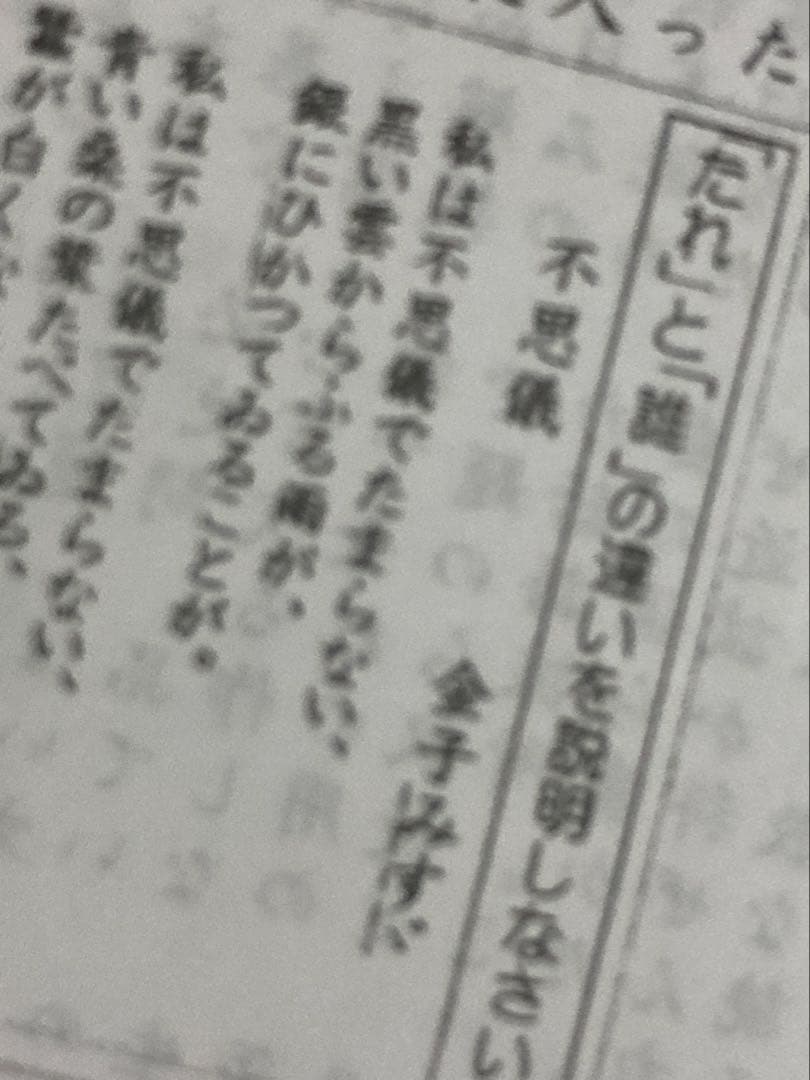 入った
「たれ」と「誰」の違いを説明しなさい
不思議
金子みすゞ
私は不思議でたまらない、
黒い雲からふる雨が、
銀にひかつてゐることが。
私は不思議でたまらない、
青い桑の葉たべてゐる、
蚕が白く